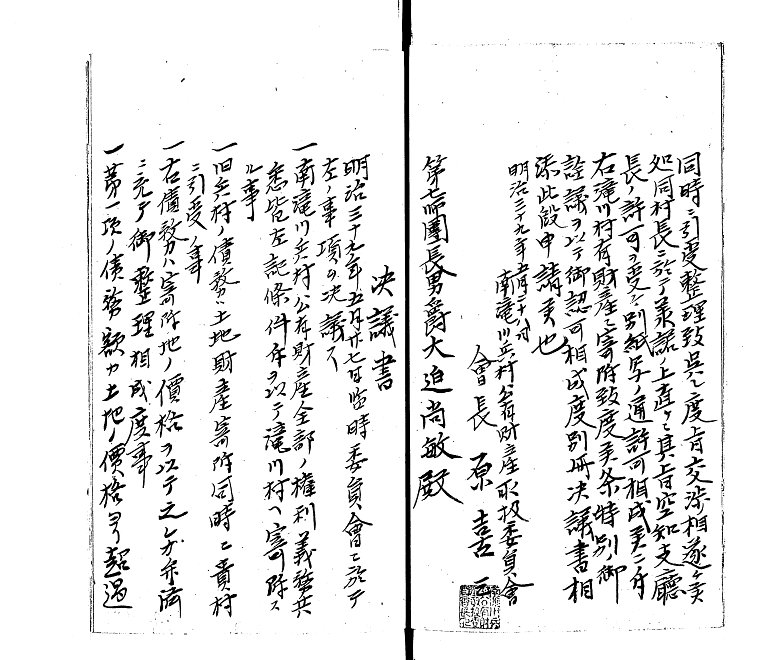 同時ニ引受整理致呉レ度旨交渉相遂ケ候
処同村長ニ於テ承諾ノ上直ニ其旨空知支廳
長ノ許可ヲ受ケ別紙写ノ通許可相成候ニ付
右滝川村有財産ニ寄附致度候条特別御
詮議ヲ以テ御認可相成度別冊決議書相
添此段申請候也
明治三十九年五月二十八日
南滝川兵村公有財産取扱委員會
會長 原喜三
第七師團長男爵大迫尚敏殿
決議書
明治三十九年五月廿七日臨時委員會ニ於テ
左ノ事項ヲ決議ス
一南滝川兵村公有財産全部ノ權利義務共
悉皆左記條件付ヲ以テ滝川村ヘ寄附ス
ル事
一旧兵村ノ債務ハ土地財産寄附同時ニ貴村
ニ引受ノ事
一右債務ハ寄附地ノ價格ヲ以テ之レカ弁済
ニ充テ御整理相成度事
一第一項ノ債務額カ土地ノ價格ヨリ超過